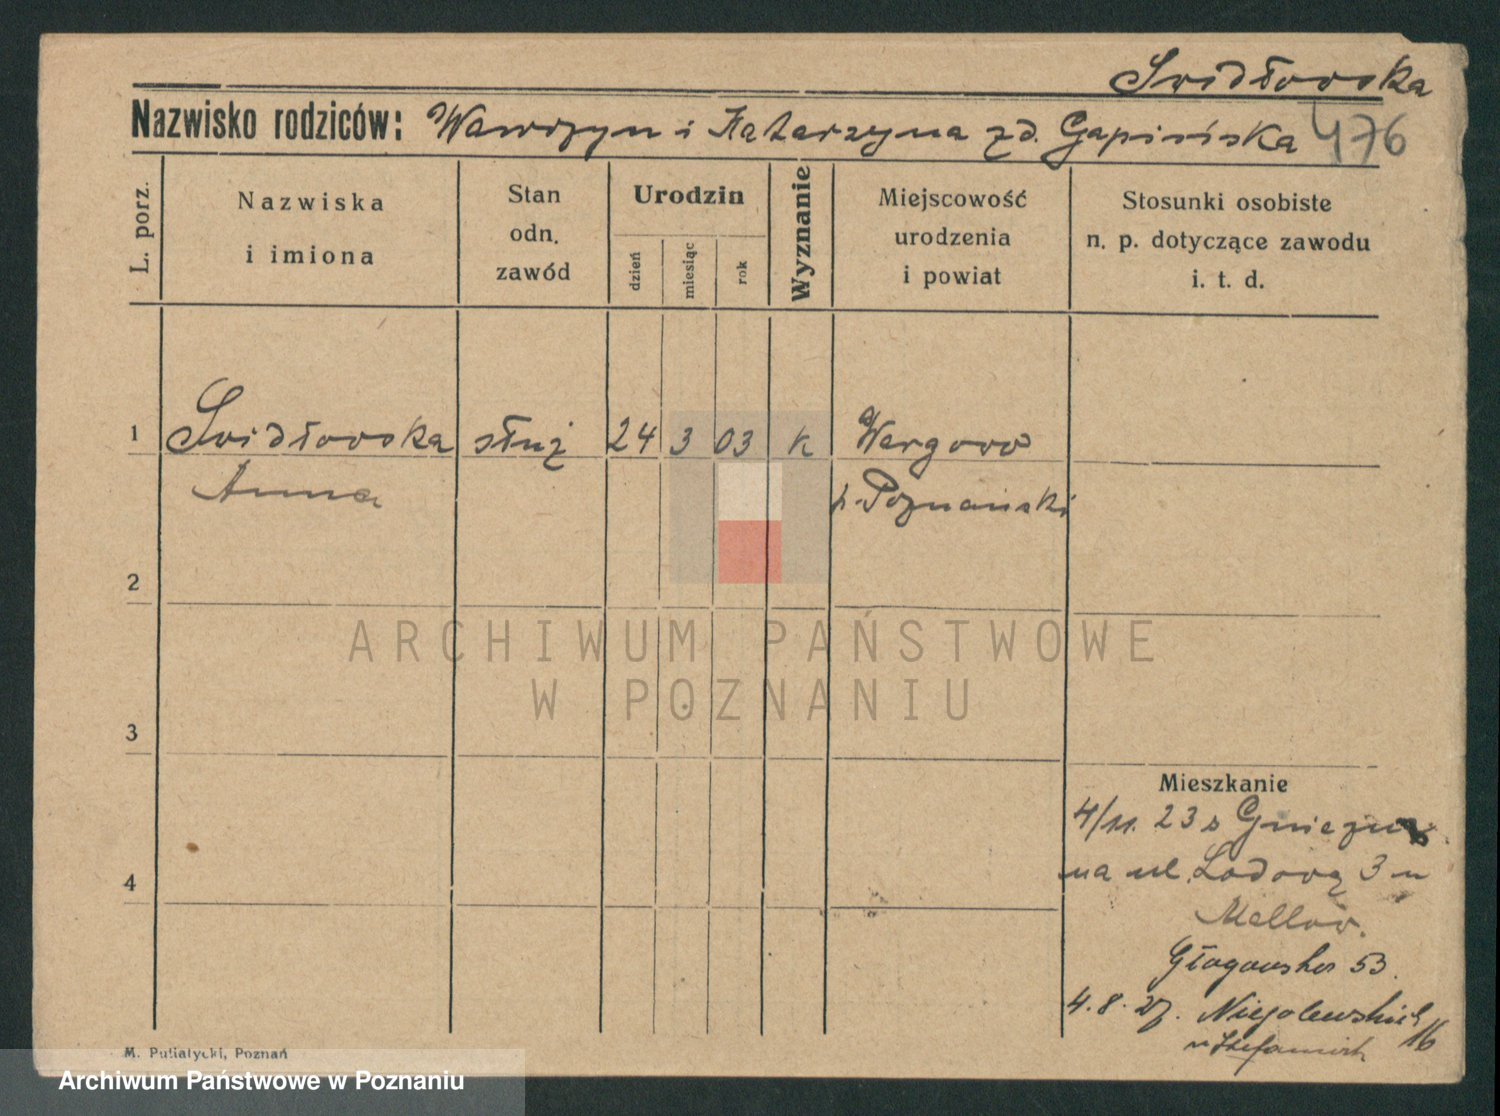 Swidłowska
Nazwisko rodziców: Wawrzyn i Katarzyna zd. Gapińska 476
L. porz.
Nazwiska
i imiona
Stan
odn.
zawód
Urodzin
dzień
miesiąc
rok
Wyznanie
Miejscowość
urodzenia
i powiat
Stosunki osobiste
n. p. dotyczące zawodu
i. t. d.
1 Swidłowska służ 24 3 03 k Wergowo
Anna p. Poznański
2
ARCHIWUM PAŃSTWOWE
W POZNANIU
3
Mieszkanie
4/11. 23 z Gniezna
na ul. Lodową 3 u
4
Mellow.
Głogowska 53.
4.8.27. Niegolewskich 16
u Stefaniak
M. Putiatycki, Poznań
Archiwum Państwowe w Poznaniu